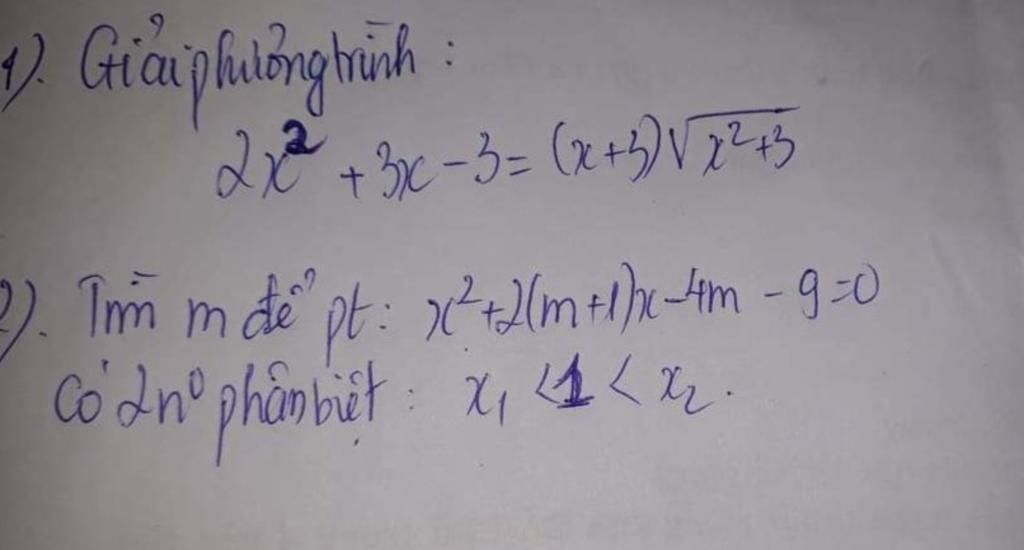 1). Giải phương trình :
2x² + 3x - 3 = (x+3)√(x²+3)
2). Tìm m để pt: x²+2(m+1)x-4m - 9=0
Có 2n⁰ phân biệt : x₁ < 1 < x₂.